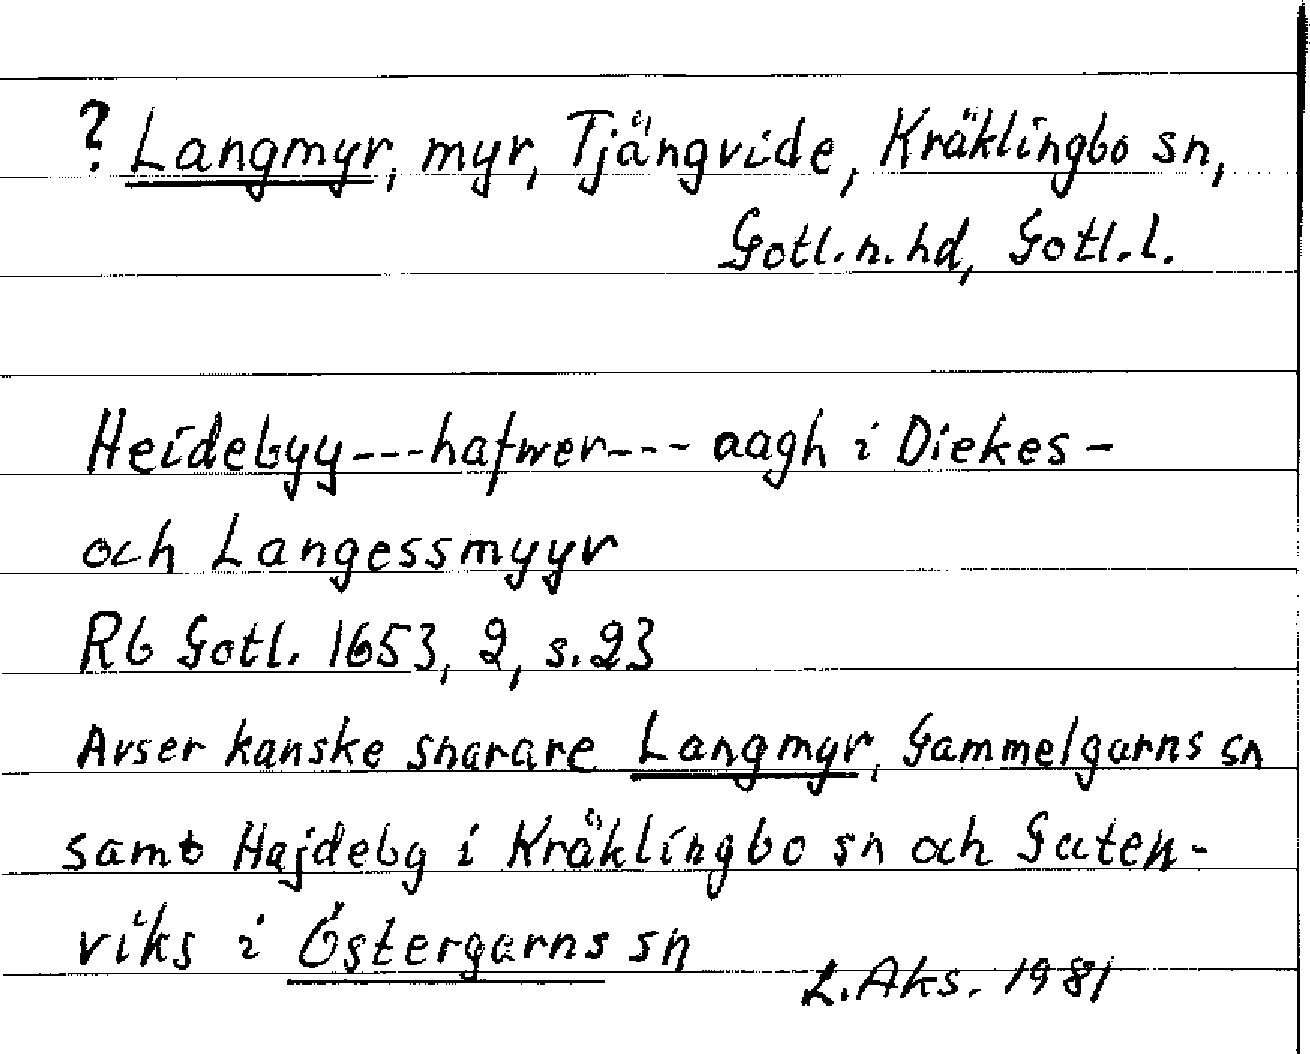 ? Langmyr, myr, Tjängvide, Kräklingbo sn,
Gotl. n. hd, Gotl. l.
Heidebyy---hafwer--- aagh i Diekes-
och Langessmyyr
Rb Gotl. 1653, 2, s. 23
Avser kanske snarare Langmyr, Gammelgarns sn
samt Hajdeby i Kräklingbo sn och Guten-
viks i Östergarns sn
L. Aks. 1981